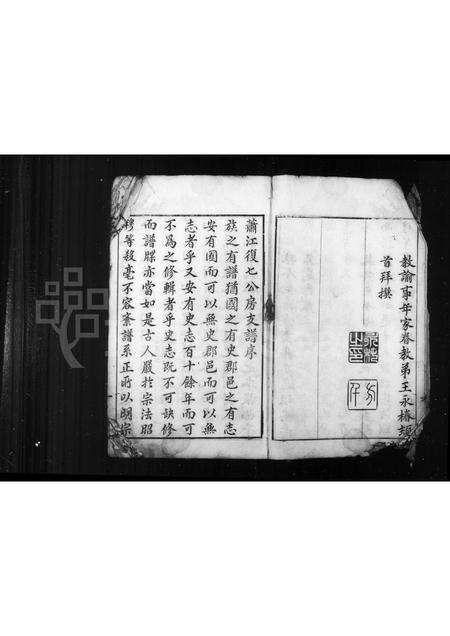 教諭事年家眷教弟王永椿頓
首拜撰
蕭江復七公房支譜序
族之有譜猶國之有史郡邑之有志
安有國而可以無史郡邑而可以無
志者乎又安有史志百十餘年而可
不為之修輯者乎史志既不可缺修
而譜牒亦當如是古人嚴於宗法昭
穆等殺毫不容紊譜系正所以明宗